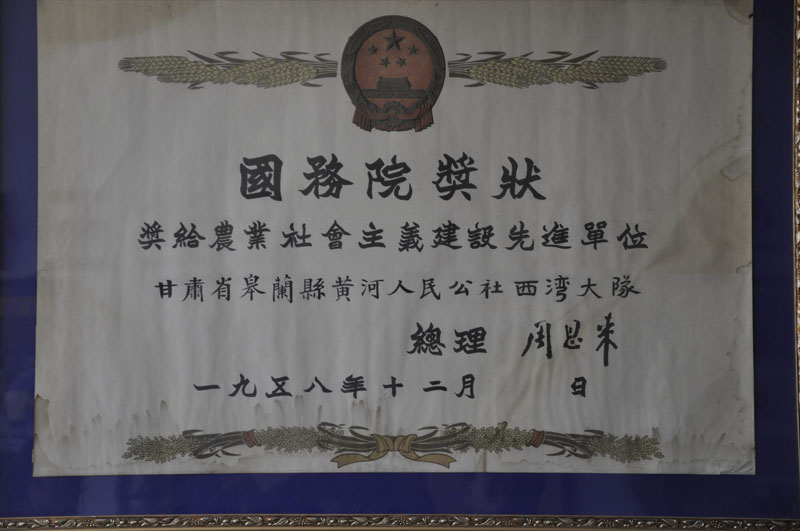 國務院獎狀
獎給農業社會主義建設先進單位
甘肃省皋蘭縣黄河人民公社西湾大隊
總理 周恩来
一九五八年十二月 日